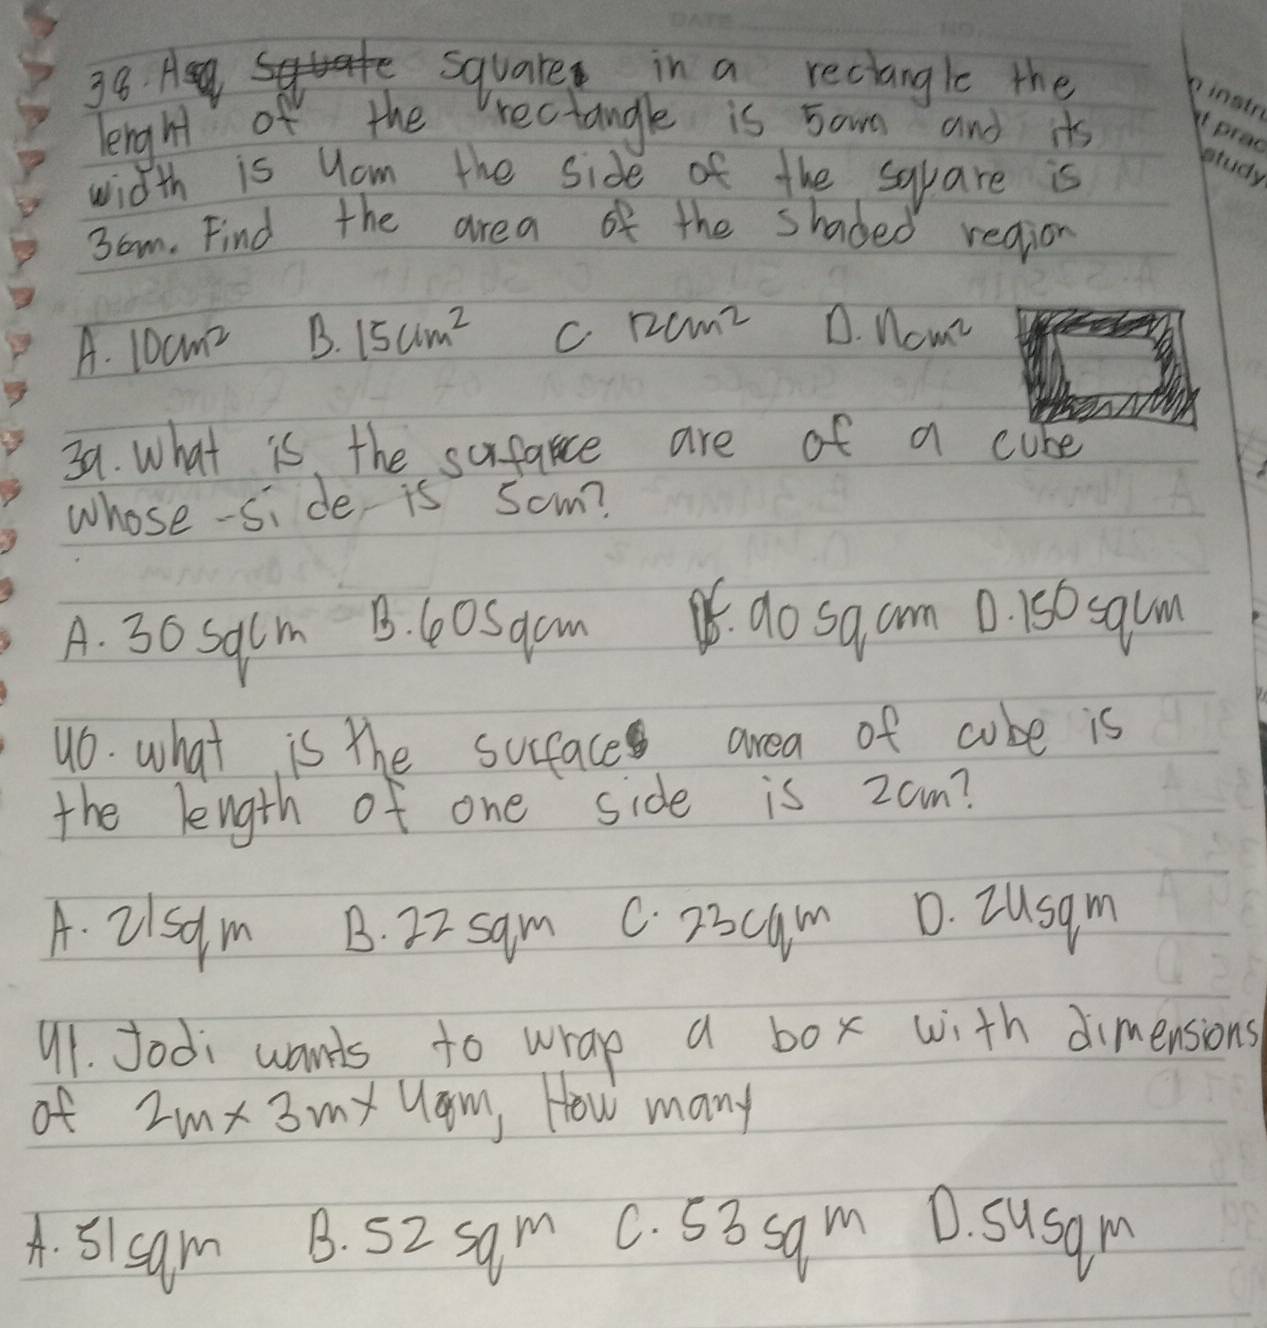 DATE
NO.
38. A square in a rectangle the
lenght of the rectangle is 5cm and its
width is 4cm the side of the square is
3cm. Find the area of the shaded region
A. 10cm² B. 15cm² C. 12cm² D. 11cm²
39. What is the surfarce are of a cube
whose -side is 5cm?
A. 30 sqcm B. 60 sqcm C. 90 sq cm D. 150 sqcm
40. what is the surface area of cube is
the length of one side is 2cm?
A. 21 sqm B. 22 sqm C. 23 cqm D. 24 sqm
41. Jodi wants to wrap a box with dimensions
of 2m x 3m x 4m, How many
A. 51 sqm B. 52 sqm C. 53 sqm D. 54 sqm